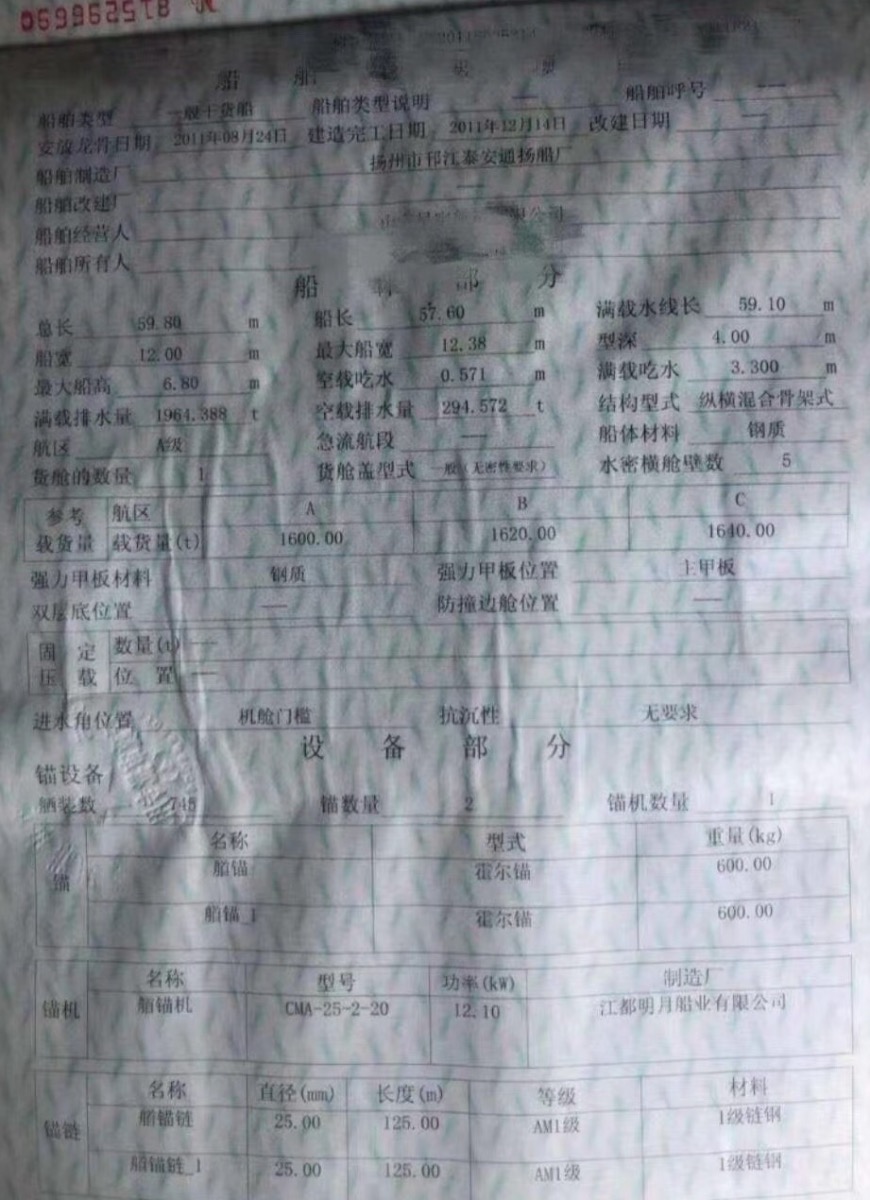 船舶类型 一般干货船 船舶类型说明 — 船舶呼号 —
安放龙骨日期 2011年08月24日 建造完工日期 2011年12月14日 改建日期 —
船舶制造厂 扬州市邗江泰安通扬船厂
船舶改建厂 —
船舶经营人
船舶所有人
船 部 分
总长 59.80 m 船长 57.60 m 满载水线长 59.10 m
船宽 12.00 m 最大船宽 12.38 m 型深 4.00 m
最大船高 6.80 m 空载吃水 0.571 m 满载吃水 3.300 m
满载排水量 1964.388 t 空载排水量 294.572 t 结构型式 纵横混合骨架式
航区 A级 急流航段 — 船体材料 钢质
货舱的数量 1 货舱盖型式 一般(无密性要求) 水密横舱壁数 5
参考 航区 A B C
载货量 载货量(t) 1600.00 1620.00 1640.00
强力甲板材料 钢质 强力甲板位置 主甲板
双层底位置 — 防撞边舱位置 —
固定 数量(t) —
压载 位置 —
进水角位置 机舱门槛 抗沉性 无要求
设备部分
锚设备
舾装数 745 锚数量 2 锚机数量 1
名称 型式 重量(kg)
锚 艏锚 霍尔锚 600.00
艏锚_1 霍尔锚 600.00
名称 型号 功率(kW) 制造厂
锚机 艏锚机 CMA-25-2-20 12.10 江都明月船业有限公司
名称 直径(mm) 长度(m) 等级 材料
锚链 艏锚链 25.00 125.00 AM1级 1级链钢
艏锚链_1 25.00 125.00 AM1级 1级链钢